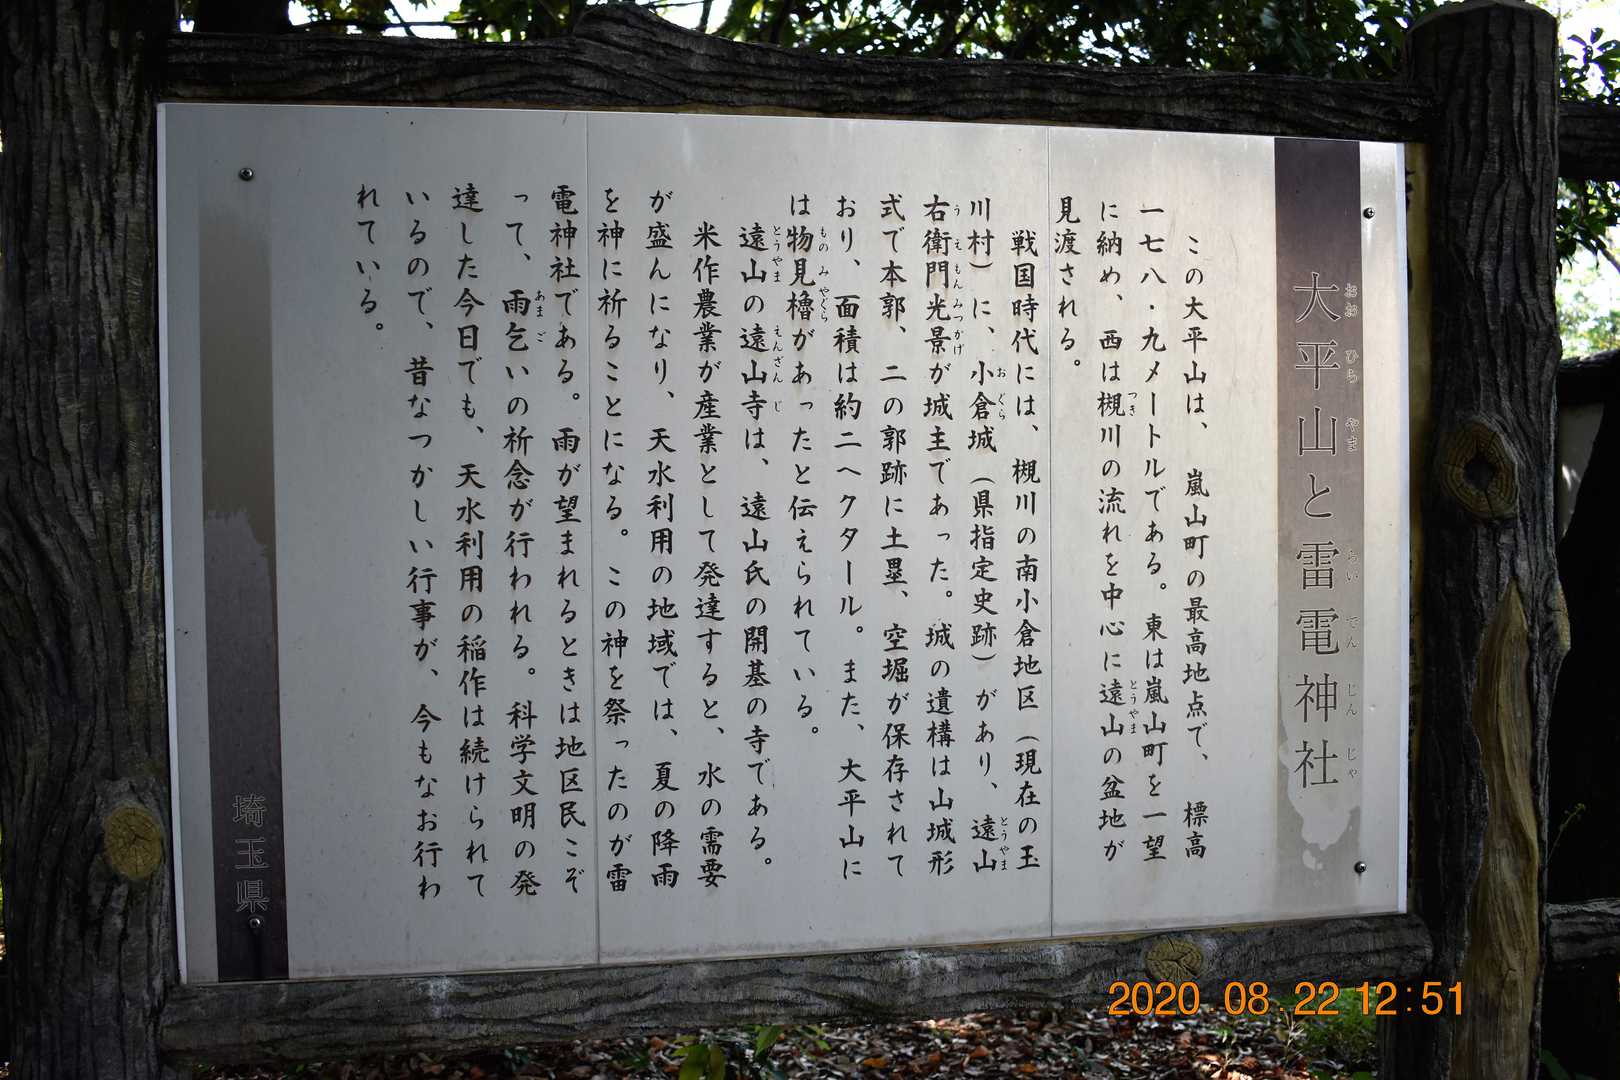 大平山と雷電神社
おおひらやま らいでんじんじゃ
この大平山は、嵐山町の最高地点で、標高
一七八・九メートルである。東は嵐山町を一望
に納め、西は槻川の流れを中心に遠山の盆地が
つき とうやま
見渡される。
戦国時代には、槻川の南小倉地区（現在の玉
川村）に、小倉城（県指定史跡）があり、遠山
おぐら とうやま
右衛門光景が城主であった。城の遺構は山城形
うえもんみつかげ
式で本郭、二の郭跡に土塁、空堀が保存されて
おり、面積は約二ヘクタール。また、大平山に
は物見櫓があったと伝えられている。
ものみやぐら
遠山の遠山寺は、遠山氏の開基の寺である。
とうやま えんざんじ
米作農業が産業として発達すると、水の需要
が盛んになり、天水利用の地域では、夏の降雨
を神に祈ることになる。この神を祭ったのが雷
電神社である。雨が望まれるときは地区民こぞ
って、雨乞いの祈念が行われる。科学文明の発
あまご
達した今日でも、天水利用の稲作は続けられて
いるので、昔なつかしい行事が、今もなお行わ
れている。
埼玉県
2020.08.22 12:51